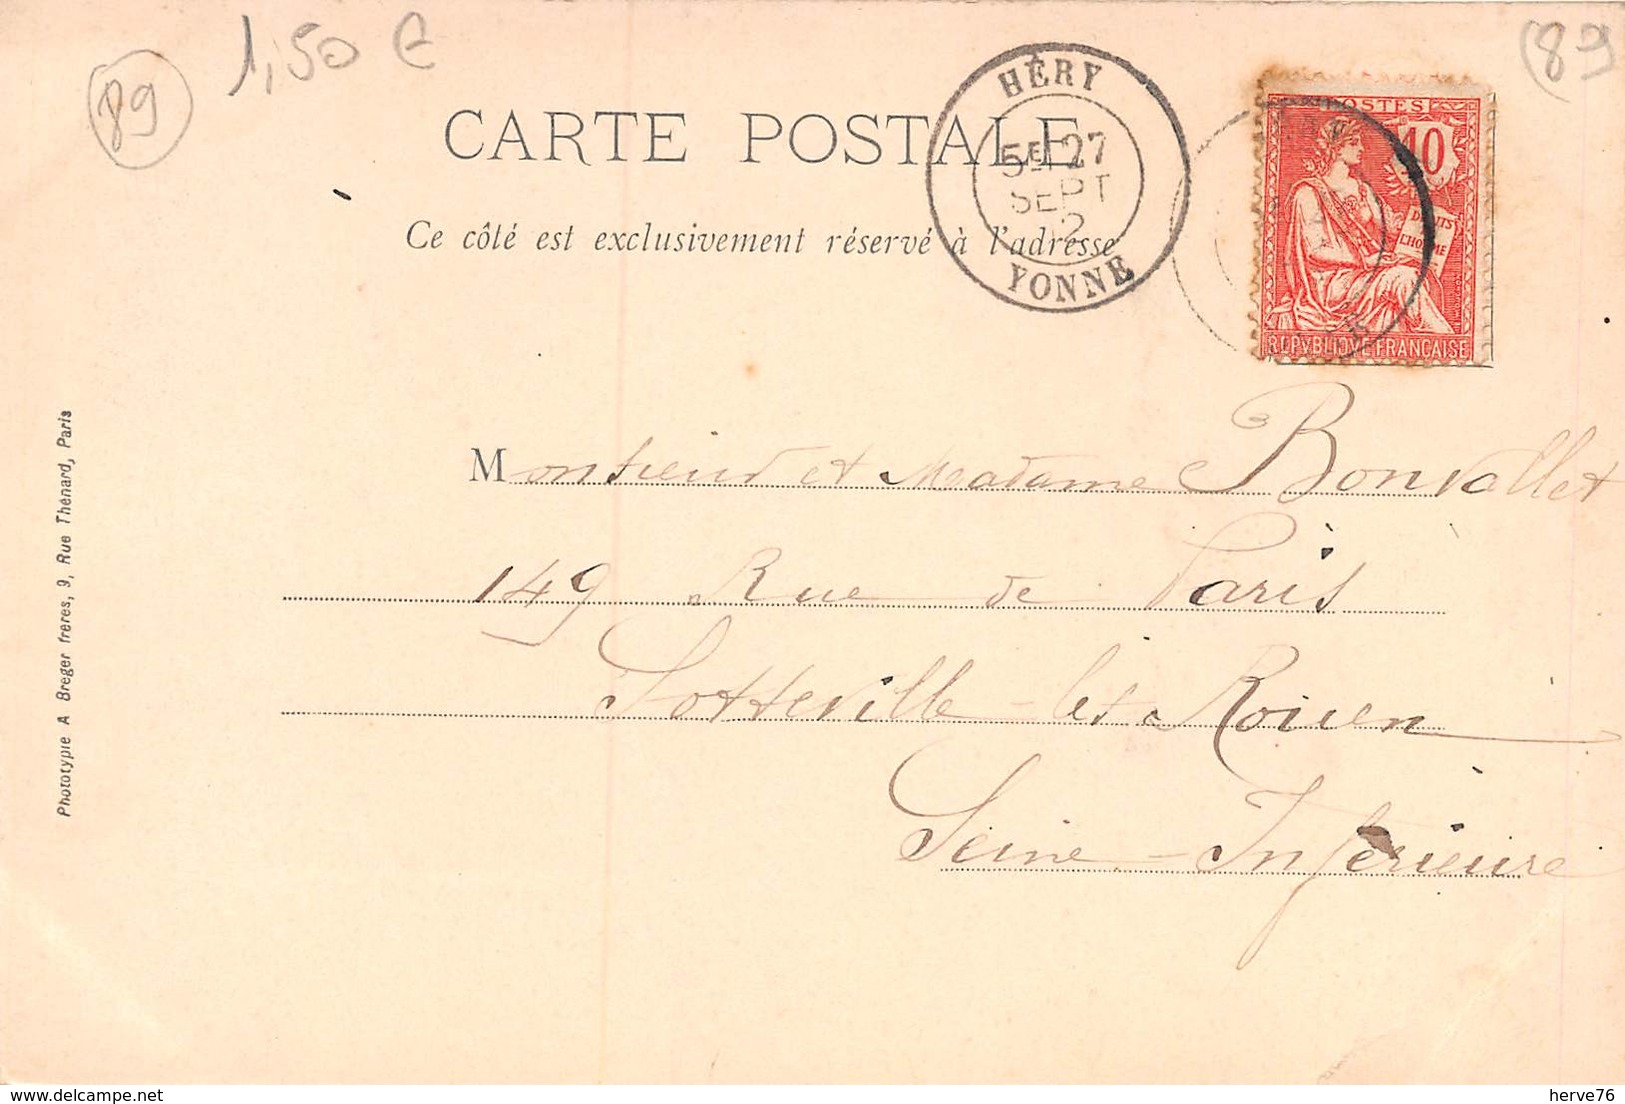 89
1,50 €
(89
CARTE POSTALE
Ce côté est exclusivement réservé à l'adresse
HÉRY
5E 27
SEPT
2
YONNE
POSTES
10
DROITS
L'HOMME
REPVBLIQVE FRANÇAISE
Monsieur et Madame Bonvallet
149 Rue de Paris
Sotteville-lès Rouen
Seine-Inférieure
Phototypie A Breger frères, 9, Rue Thénard, Paris
herve76